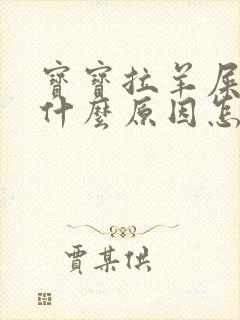 寶寶拉羊屎
什麼原因怎
賈某供